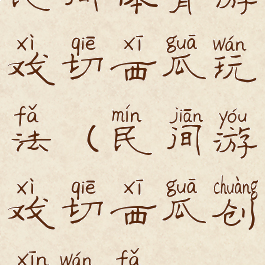 xì qiē xī guā wán
戏切西瓜玩
fǎ mín jiān yóu
法（民间游
xì qiē xī guā chuàng
戏切西瓜创
xīn wán fǎ